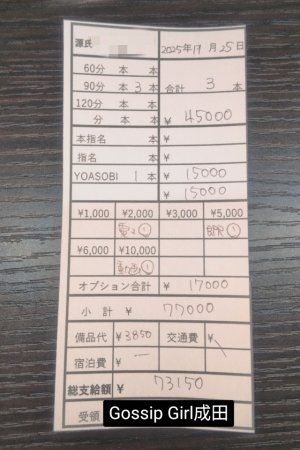 源氏 2025年11月25日
60分 本 本
90分 本 3 本 合計 3 本
120分 本 本
分 本 ¥ 45000
本指名 本 ¥
指名 本 ¥
YOASOBI 1 本 ¥ 15000
¥ 15000
¥1,000 ¥2,000 ¥3,000 ¥5,000
①
①
¥6,000 ¥10,000
動画①
オプション合計 ¥ 17000
小計 ¥ 77000
備品代 ¥3850 交通費 ¥
宿泊費 ¥ —
総支給額 ¥ 73150
受領
Gossip Girl成田